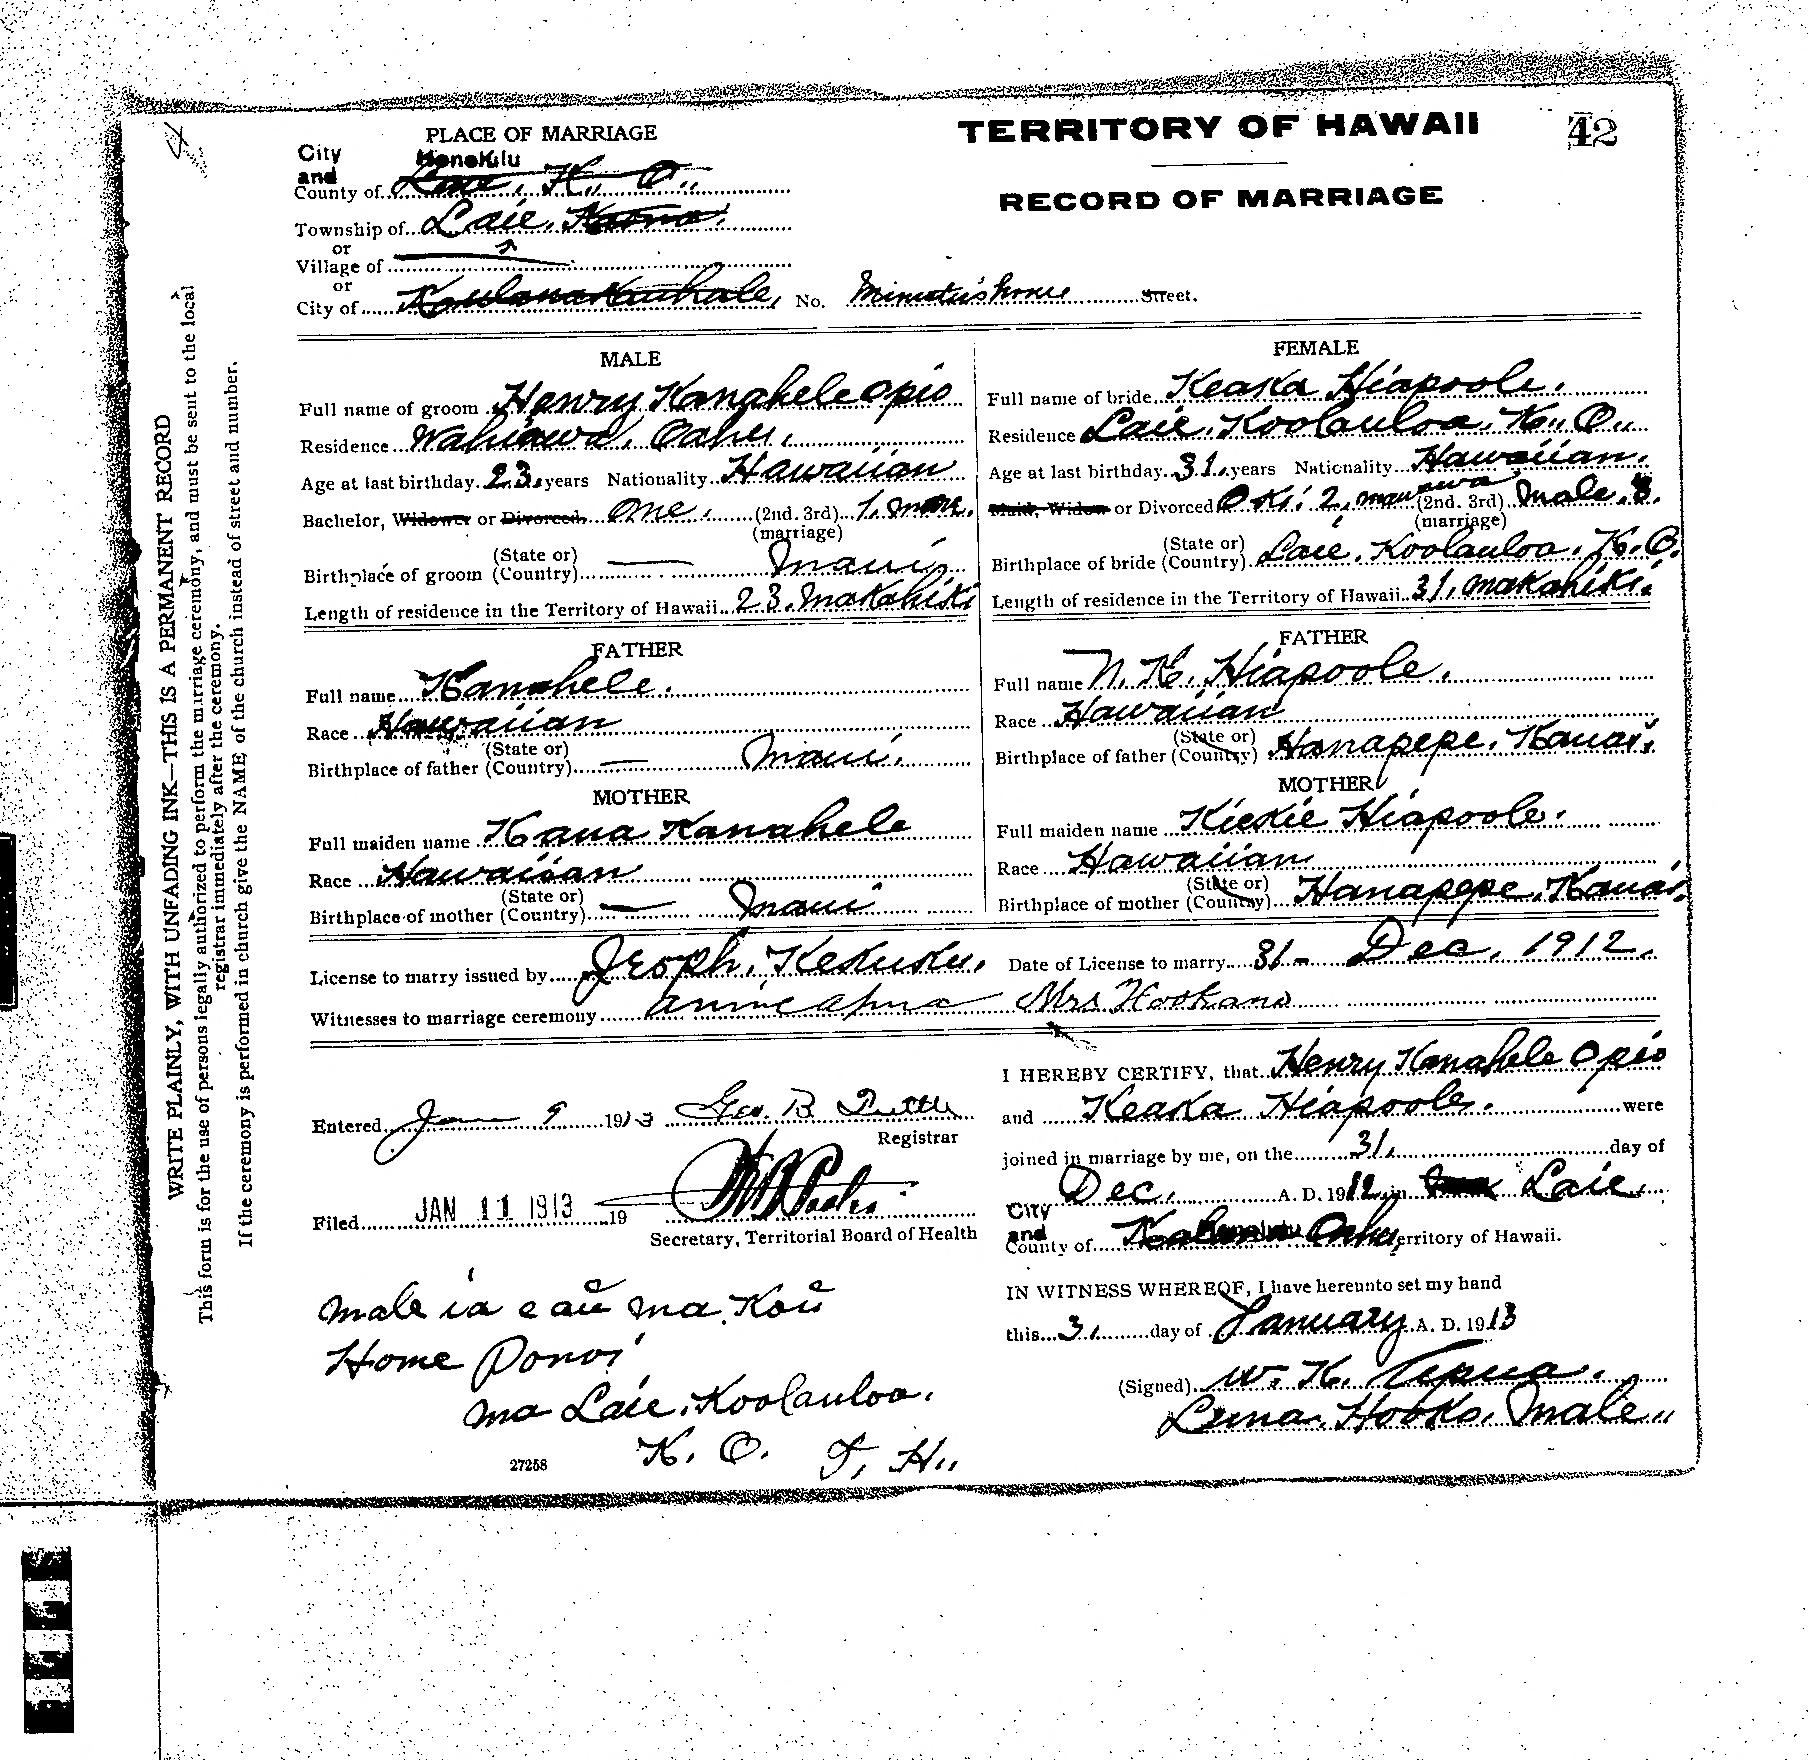 TERRITORY OF HAWAII
42
RECORD OF MARRIAGE
PLACE OF MARRIAGE
City and County of Honolulu K. O.
Township of Laie. Kona.
or
Village of
or
City of Kaulanakauhale, No. Minuteis house Street.
MALE
Full name of groom Henry Kanahele Opio
Residence Wahiawa, Oahu.
Age at last birthday 23. years Nationality Hawaiian
Bachelor, Widower or Divorced, One. (2nd. 3rd) 1. mare.
(marriage)
(State or)
Birthplace of groom (Country) Maui
Length of residence in the Territory of Hawaii 23. Makahiki
FATHER
Full name Kanahele.
Race Hawaiian
(State or)
Birthplace of father (Country) Maui.
MOTHER
Full maiden name Kana Kanahele
Race Hawaiian
(State or)
Birthplace of mother (Country) Maui
FEMALE
Full name of bride Keaka Hiapoole.
Residence Laie. Koolauloa. K. O.
Age at last birthday 31. years Nationality Hawaiian.
Maid, Widow or Divorced Oki. 2. manawa (2nd. 3rd) Male. 3.
(marriage)
(State or)
Birthplace of bride (Country) Laie. Koolauloa. K. O.
Length of residence in the Territory of Hawaii 31. makahiki.
FATHER
Full name N. K. Hiapoole.
Race Hawaiian
(State or)
Birthplace of father (Country) Hanapepe. Kauai.
MOTHER
Full maiden name Kiekie Hiapoole.
Race Hawaiian
(State or)
Birthplace of mother (Country) Hanapepe. Kauai.
License to marry issued by Jeoph. Kekuku. Date of License to marry 31- Dec. 1912.
Witnesses to marriage ceremony Annie Apua Mrs Hookano
Entered Jan 9 1913 Geo. B
Registrar
Filed JAN 11 1913 19
Secretary, Territorial Board of Health
Male ia e au ma Kou
Home Ponoi
ma Laie. Koolauloa.
K. O. T. H.
27258
I HEREBY CERTIFY, that Henry Kanahele Opio
and Keaka Hiapoole. were
joined in marriage by me, on the 31. day of
Dec. A. D. 1912. in Laie.
City and County of Honolulu Oahu, Territory of Hawaii.
IN WITNESS WHEREOF, I have hereunto set my hand
this 3. day of January A. D. 1913
(Signed) W. K. Apua.
Luna. Hooko. Male.
WRITE PLAINLY, WITH UNFADING INK—THIS IS A PERMANENT RECORD
This form is for the use of persons legally authorized to perform the marriage ceremony, and must be sent to the local
registrar immediately after the ceremony.
If the ceremony is performed in church give the NAME of the church instead of street and number.